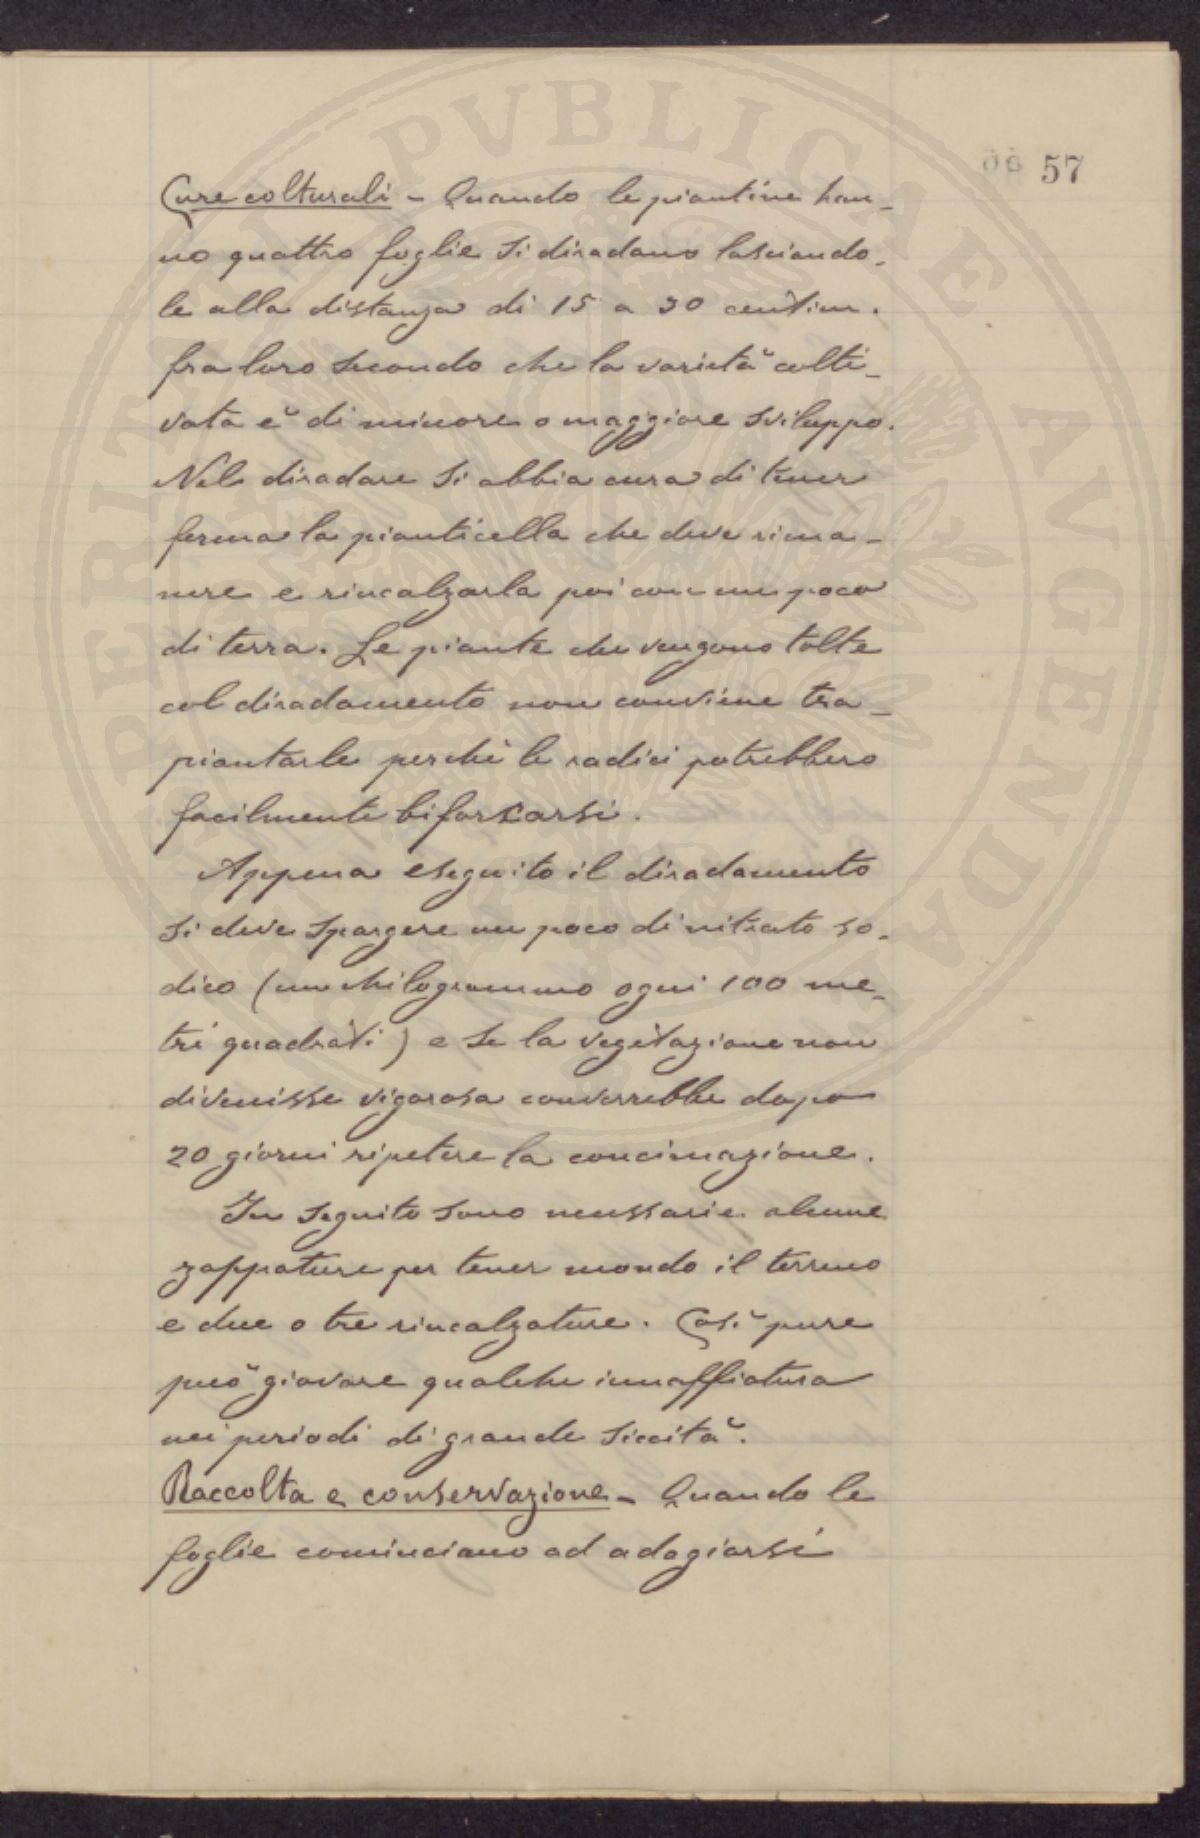 PROSPERITATI PVBLICAE AVGENDAE
57
Cure colturali - Quando le piantine han-
no quattro foglie si diradano lasciando-
le alla distanza di 15 a 30 centim.
fra loro secondo che la varietà colti-
vata è di minore o maggiore sviluppo.
Nel diradare si abbia cura di tener
ferma la pianticella che deve rima-
nere e rincalzarla poi con un poco
di terra. Le piante che vengono tolte
col diradamento non conviene tra-
piantarle perchè le radici potrebbero
facilmente biforcarsi.
Appena eseguito il diradamento
si deve spargere un poco di nitrato so-
dico (un chilogrammo ogni 100 me-
tri quadrati) e se la vegetazione non
divenisse vigorosa converrebbe dopo
20 giorni ripetere la concimazione.
In seguito sono necessarie alcune
zappature per tener mondo il terreno
e due o tre rincalzature. Così pure
può giovare qualche innaffiatura
nei periodi di grande siccità.
Raccolta e conservazione - Quando le
foglie cominciano ad adagiarsi